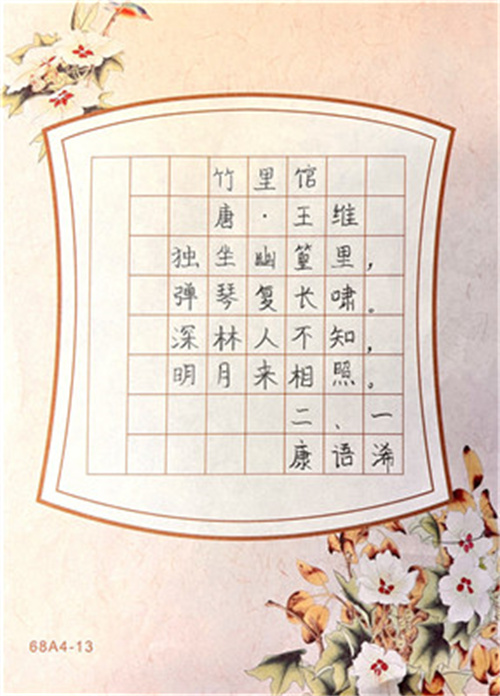 竹里馆
唐·王维
独坐幽篁里，
弹琴复长啸。
深林人不知，
明月来相照。
二、一
康语浠
68A4-13